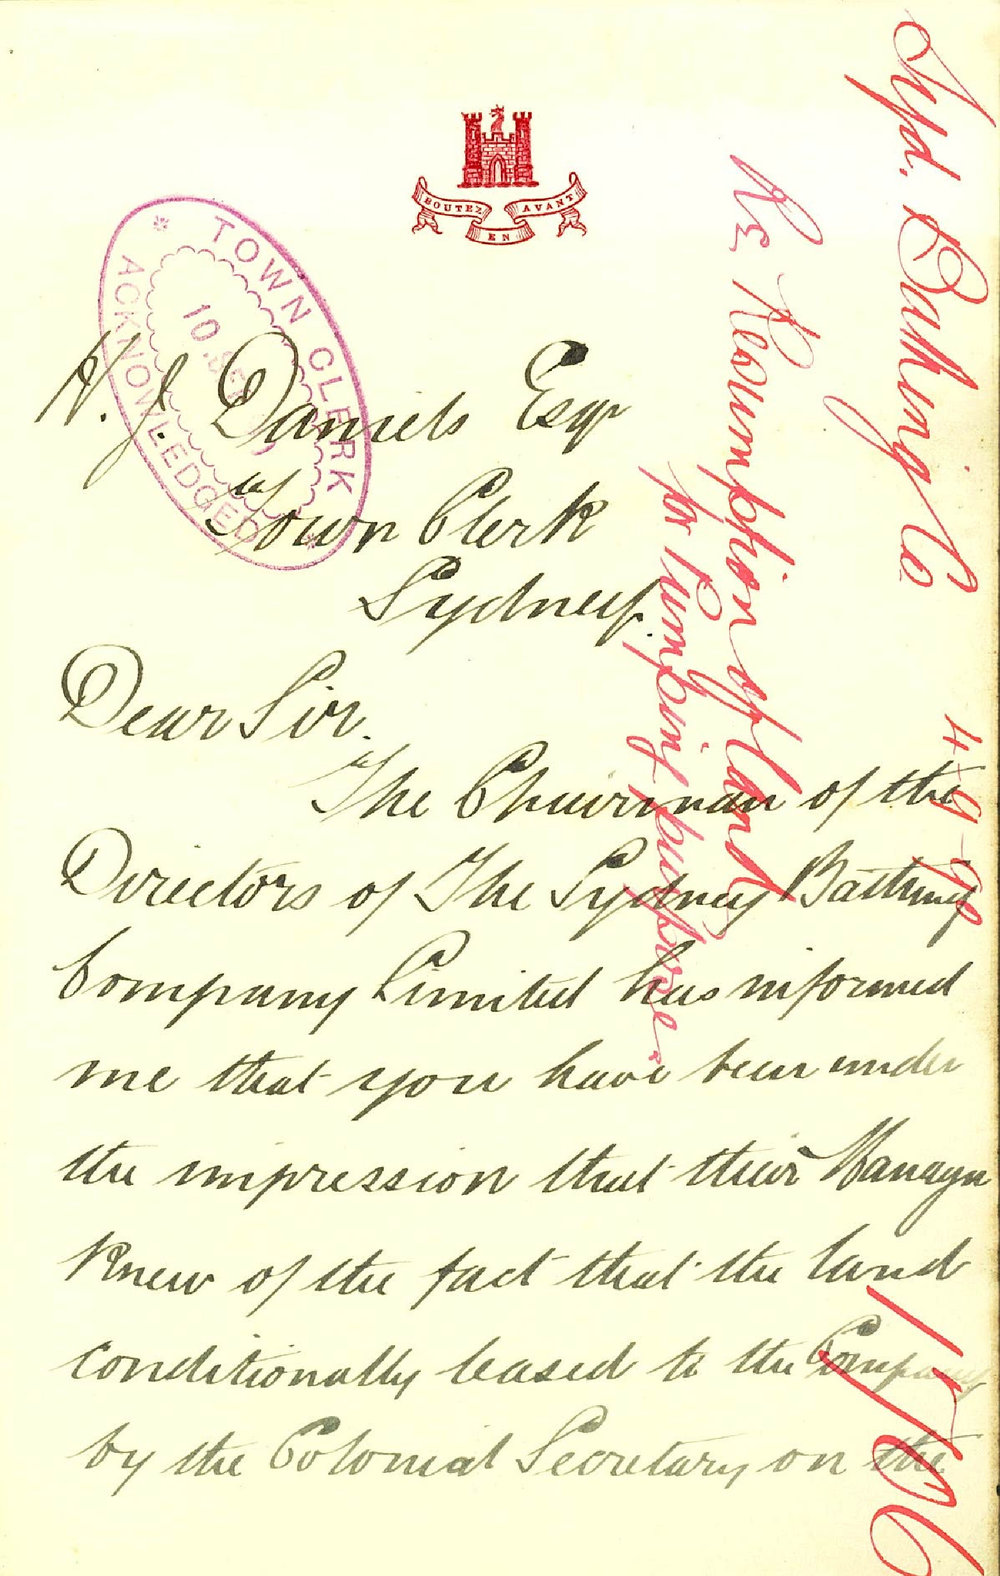 BOUTEZ EN AVANT
TOWN CLERK
ACKNOWLEDGED
10 SEP
H. J. Daniels Esqr
Town Clerk
Sydney.
Dear Sir.
The Chairman of the
Directors of The Sydney Bathing
Company Limited has informed
me that you have been under
the impression that their Manager
knew of the fact that the land
conditionally leased to the Company
by the Colonial Secretary on the
Syd. Bathing Co
4-9-
Re Resumption of land
for Pumping purposes.